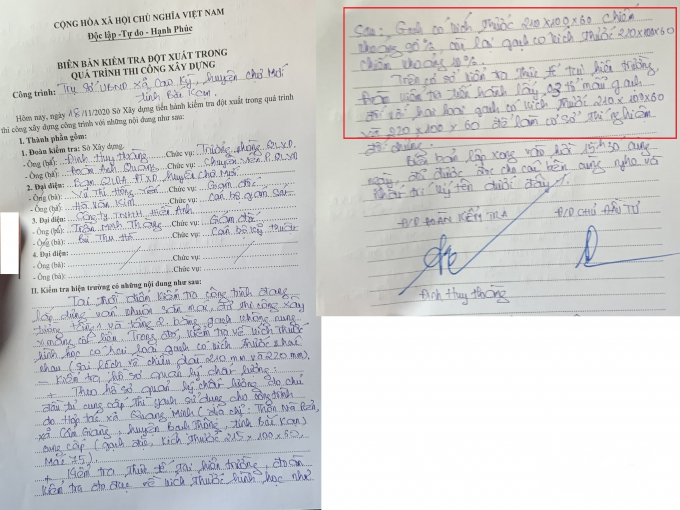 CỘNG HÒA XÃ HỘI CHỦ NGHĨA VIỆT NAM
Độc lập -Tự do - Hạnh Phúc
BIÊN BẢN KIỂM TRA ĐỘT XUẤT TRONG
QUÁ TRÌNH THI CÔNG XÂY DỰNG
Công trình: Trụ sở UBND xã Cao Kỳ, huyện Chợ Mới
tỉnh Bắc Kạn
Hôm nay, ngày 18/11/2020 Sở Xây dựng tiến hành kiểm tra đột xuất trong quá trình
thi công xây dựng công trình với những nội dung như sau:
I. Thành phần gồm:
1. Đoàn kiểm tra: Sở Xây dựng.
- Ông (bà): Đinh Huy Thông Chức vụ: Trưởng phòng QLXD
- Ông (bà): Đoàn Anh Quang Chức vụ: Chuyên viên P. QLXD
2. Đại diện: Ban QLDA ĐTXD huyện Chợ Mới
- Ông (bà): Vũ Thị Hồng Yến Chức vụ: Giám đốc
- Ông (bà): Hà Văn Kim Chức vụ: Cán bộ giám sát
3. Đại diện: Công ty TNHH Hiền Anh
- Ông (bà): Trần Minh Thắng Chức vụ: Giám đốc
- Ông (bà): Bùi Thu Hà Chức vụ: Cán bộ kỹ thuật
4. Đại diện:
- Ông (bà): Chức vụ:
- Ông (bà): Chức vụ:
II. Kiểm tra hiện trường có những nội dung như sau:
Tại thời điểm kiểm tra công trình đang
lắp dựng ván khuôn sàn mái, đã thi công xây
tường tầng 1 và tầng 2 bằng gạch không nung
xi măng cốt liệu. Trong đó, kiểm tra về kích thước
hình học có hai loại gạch có kích thước khác
nhau (sai lệch về chiều dài 210 mm và 220 mm).
- Kiểm tra hồ sơ quản lý chất lượng:
+ Theo hồ sơ quản lý chất lượng do chủ
đầu tư cung cấp thì gạch sử dụng cho công trình
do Hợp tác xã Quang Minh (địa chỉ: Thôn Nà Pẻn,
xã Cẩm Giàng, huyện Bạch Thông, tỉnh Bắc Kạn)
cung cấp (gạch đặc, kích thước 215 x 100 x 60,
Mác 75).
+ Kiểm tra thực tế tại hiện trường, đoàn
kiểm tra đo đạc về kích thước hình học như
Sau: Gạch có kích thước 210x100x60 chiếm
khoảng 90%, còn lại gạch có kích thước 220x100x60
chiếm khoảng 10%.
Trên cơ sở kiểm tra thực tế tại hiện trường,
Đoàn kiểm tra tiến hành lấy 02 tổ mẫu gạch
đối với hai loại gạch có kích thước 210 x 100x60
và 220 x 100 x 60 để làm cơ sở thí nghiệm
đối chứng.
Biên bản lập xong vào hồi 15h30 cùng
ngày, đã được đọc cho các bên cùng nghe và
nhất trí ký tên dưới đây./.
Đ/D ĐOÀN KIỂM TRA Đ/D CHỦ ĐẦU TƯ
Đinh Huy Thông